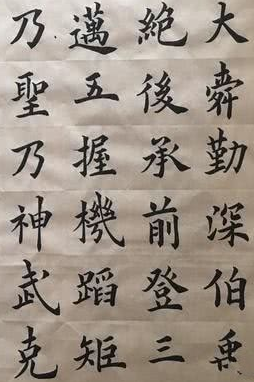 大舜勤深伯禹
絶後承前登三
邁五握機蹈矩
乃聖乃神武克